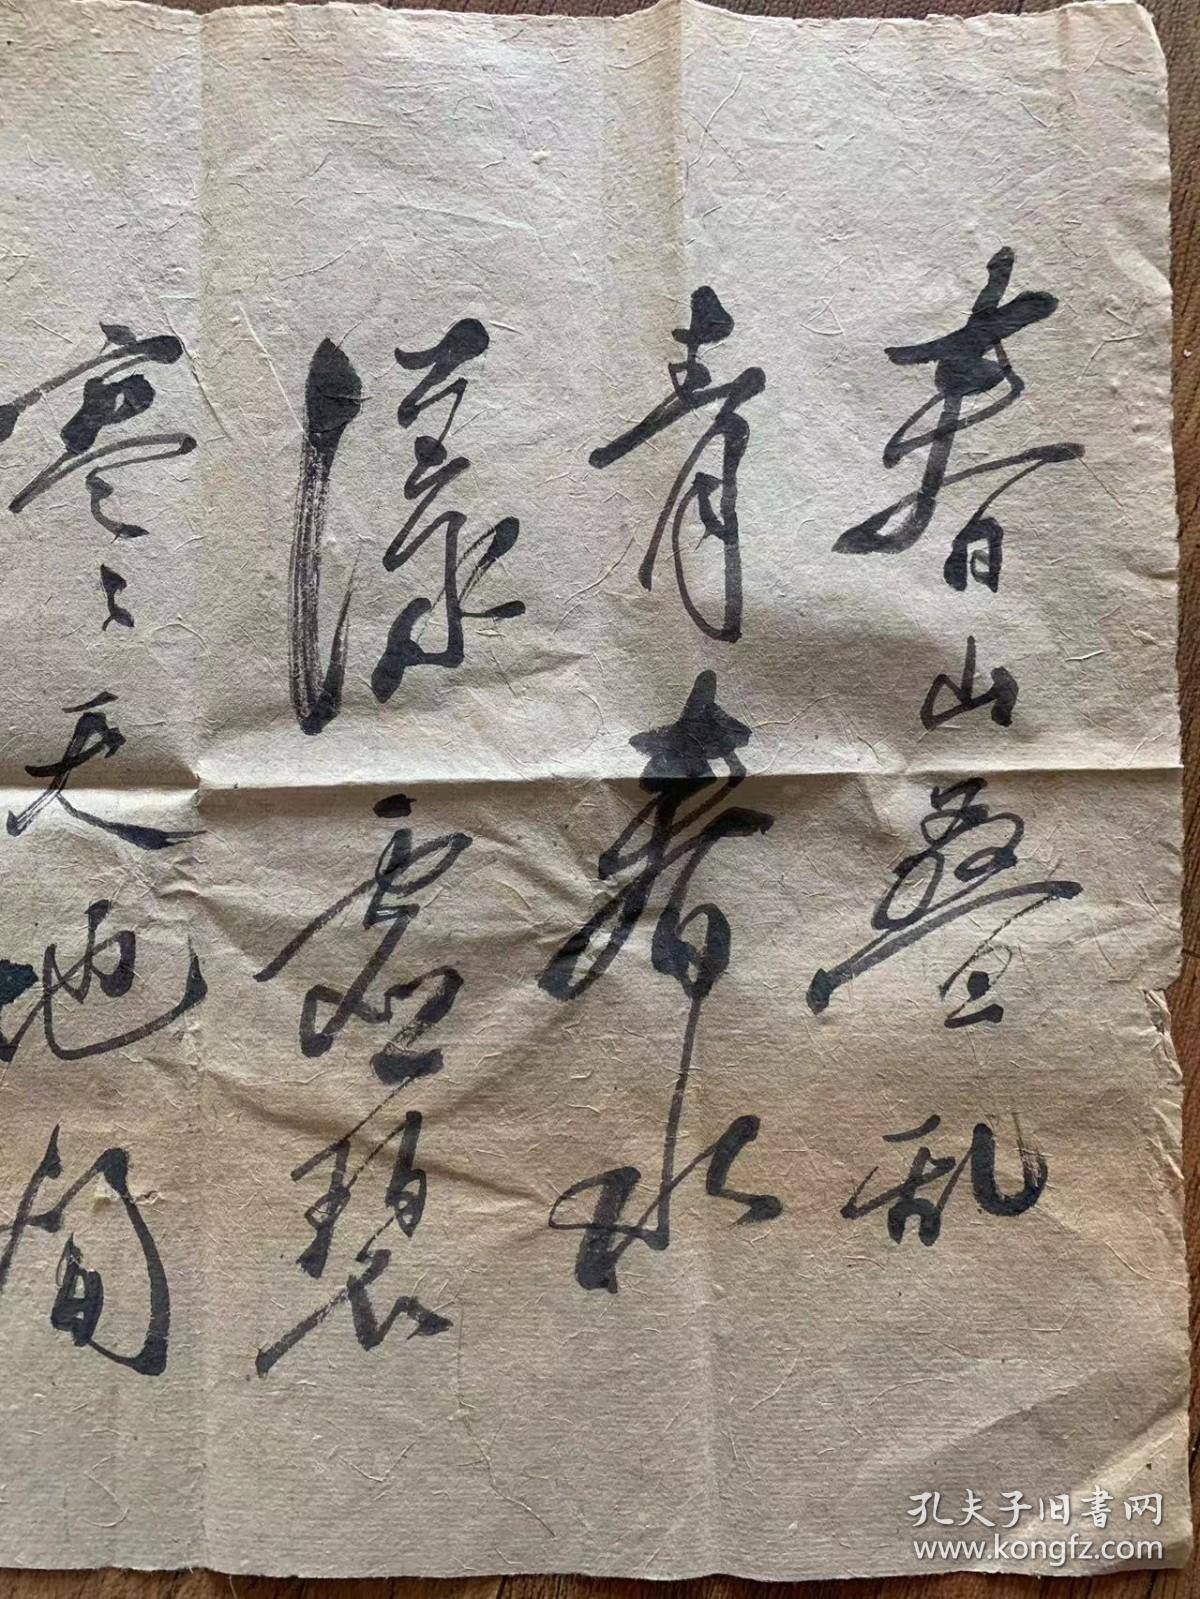 春山叠乱
青春水
漾虚碧
寥寥天地间
孔夫子旧书网
www.kongfz.com